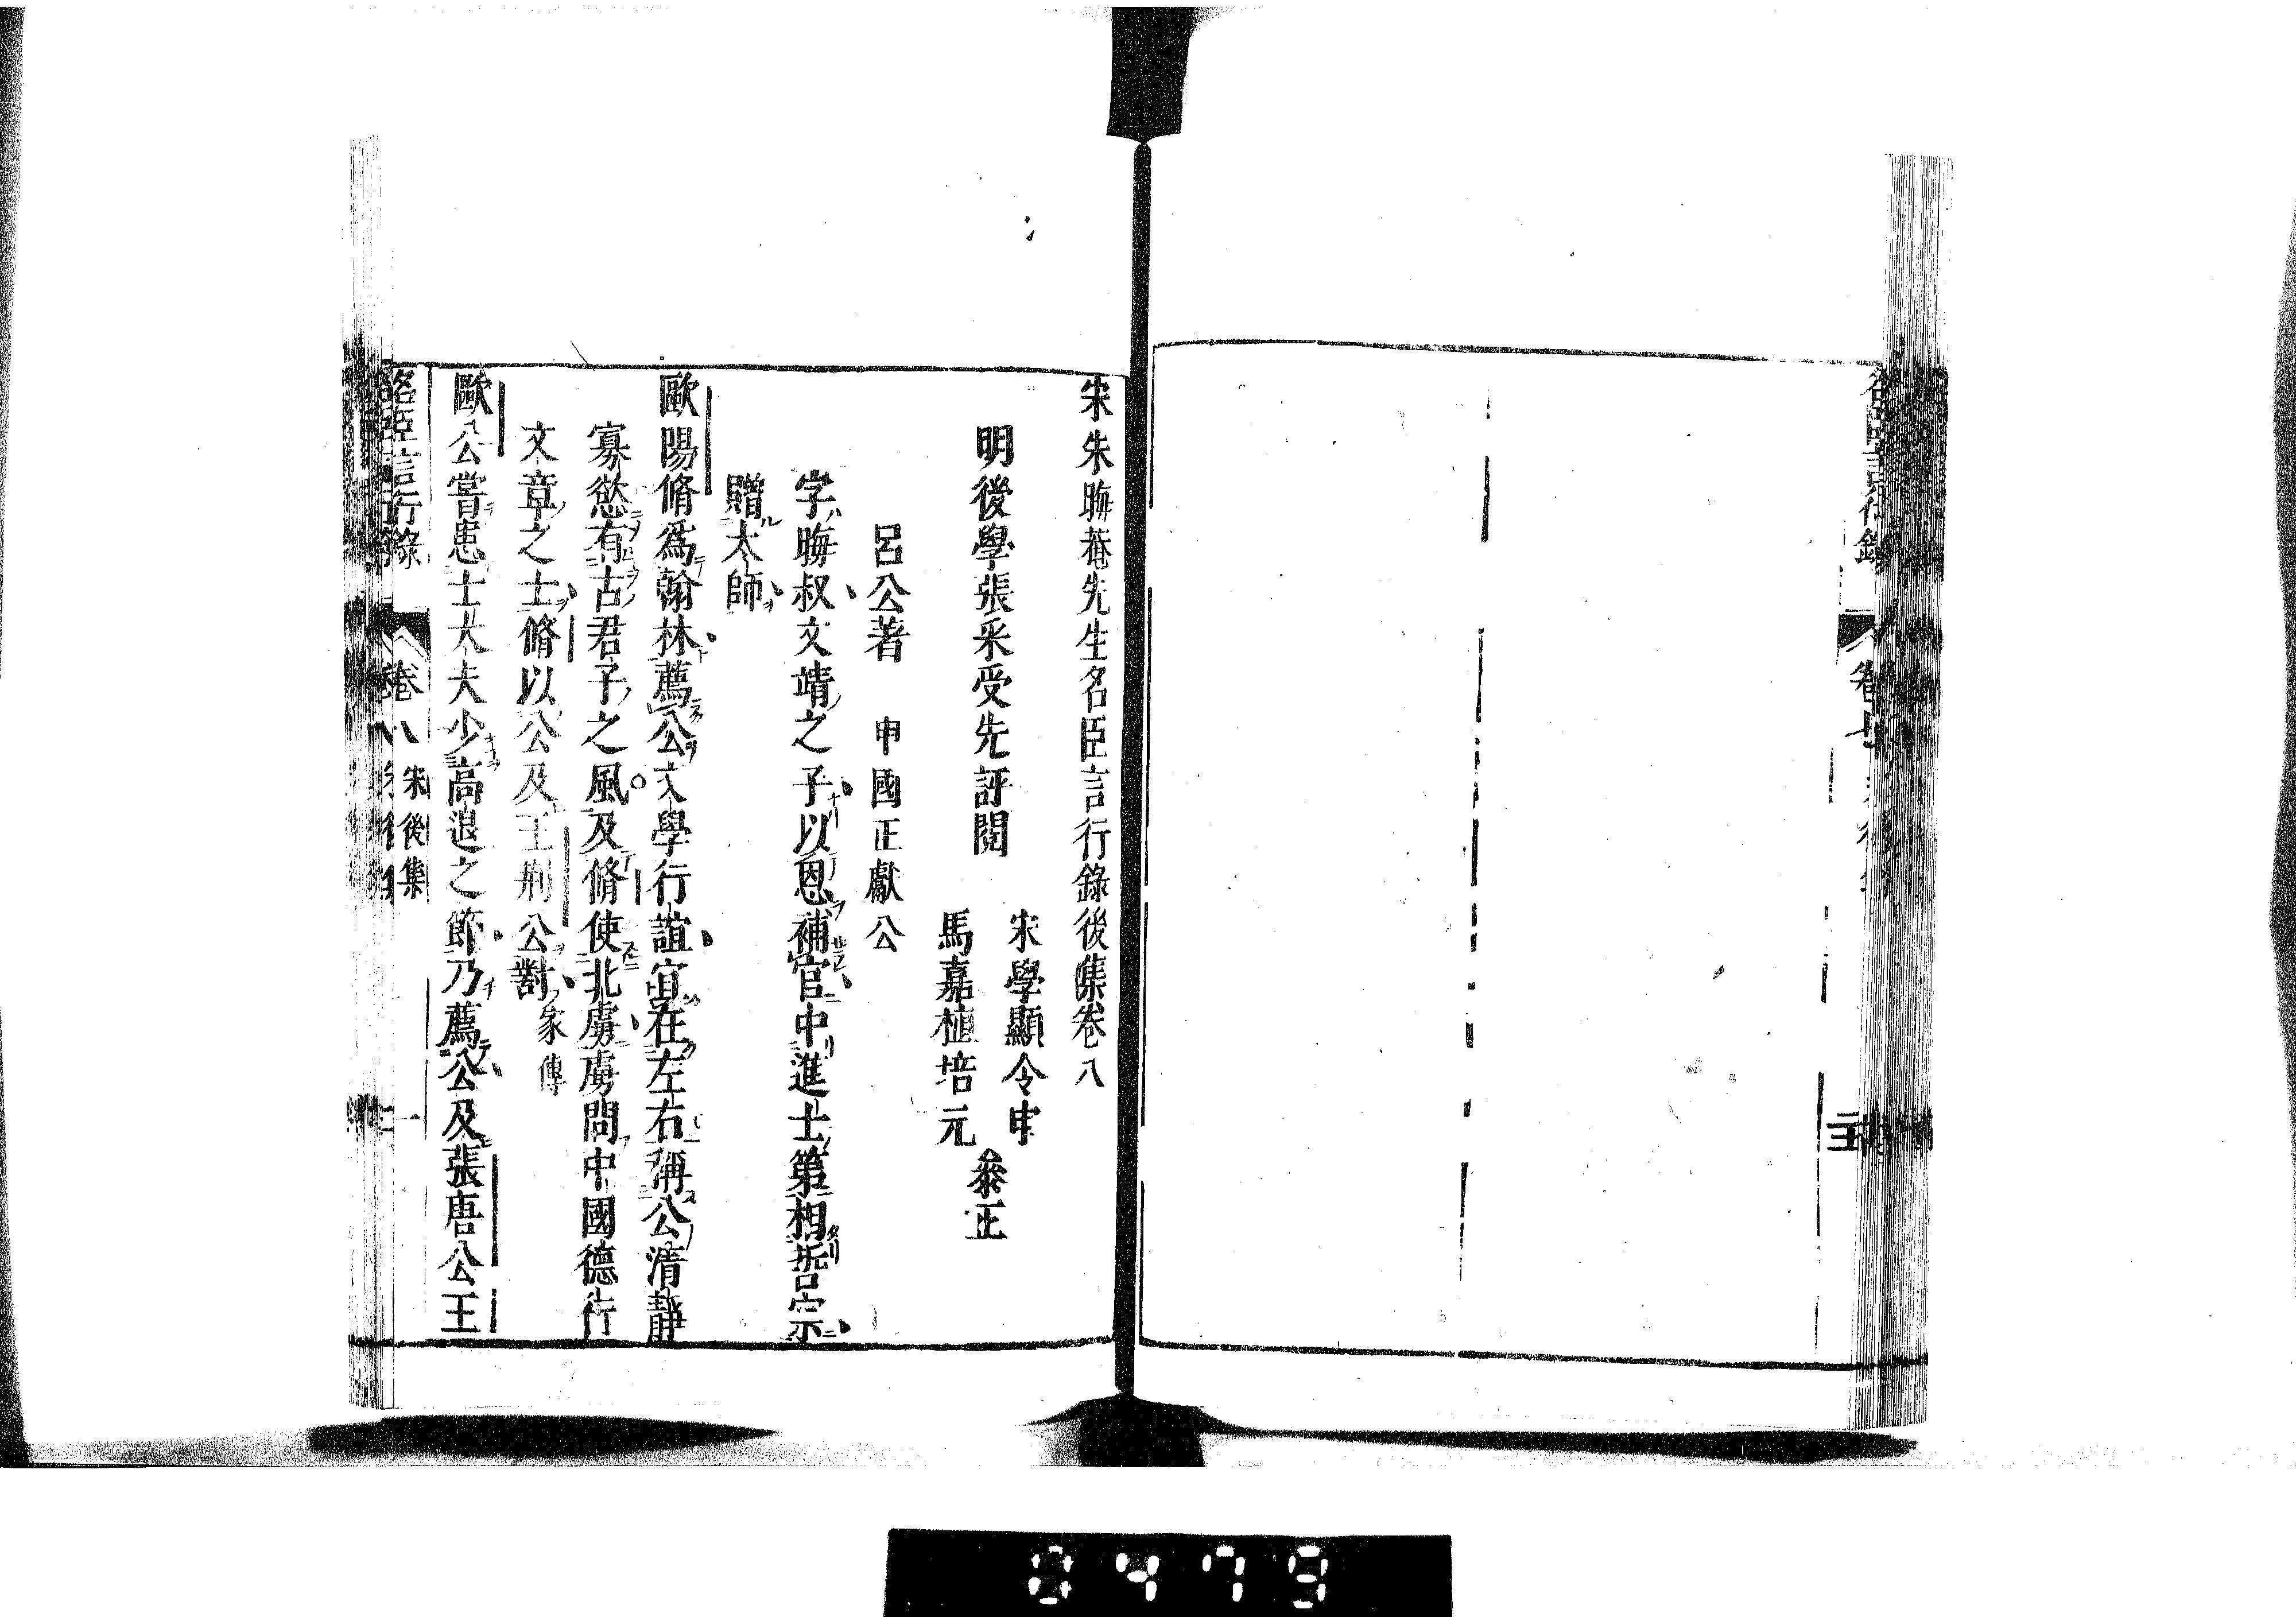 宋朱晦菴先生名臣言行錄後集卷八
明後學張采受先評閱
宋學顯令申
馬嘉植培元
叅正
呂公著 申國正獻公
字晦叔文靖之子以恩補官中進士第相哲宗
贈太師
歐陽脩爲翰林薦公文學行誼宜在左右稱公清靜
寡慾有古君子之風及脩使北虜虜問中國德行
文章之士脩以公及王荆公對家傳
歐公嘗患士大夫少高退之節乃薦公及張唐公王
名臣言行錄 卷八 宋後集 一
卷七
8479